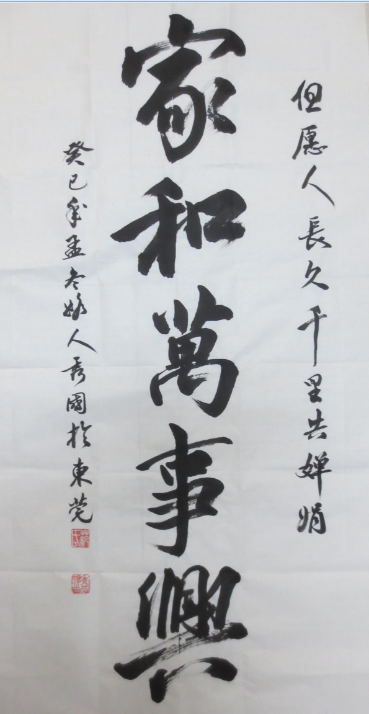 但愿人長久千里共婵娟
家和萬事興
癸巳年孟冬人秀國於東莞